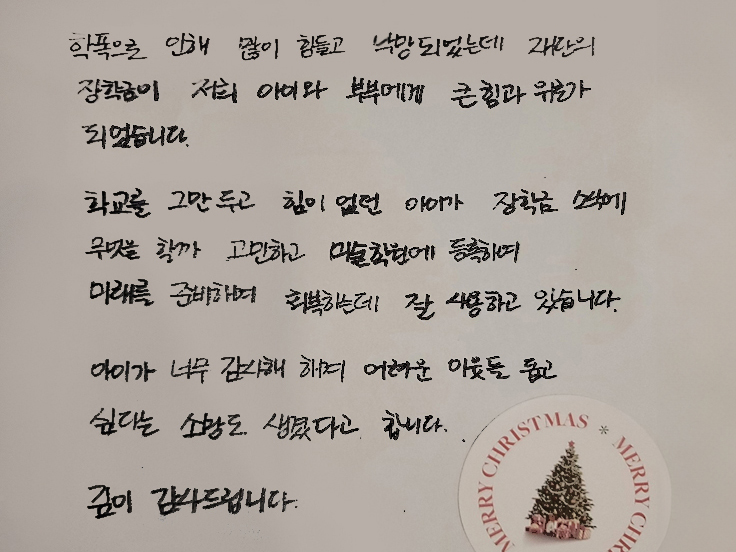 학폭으로 인해 많이 힘들고 낙망되었는데 재단의
장학금이 저희 아이와 부부에게 큰힘과 위로가
되었습니다.
학교를 그만두고 힘이 없던 아이가 장학금 소식에
무엇을 할까 고민하고 미술학원에 등록하여
미래를 준비하며 회복하는데 잘 사용하고 있습니다.
아이가 너무 감사해 하며 어려운 이웃들 돕고
싶다는 소망도 생겼다고 합니다.
깊이 감사드립니다.
MERRY CHRISTMAS * MERRY CHRI